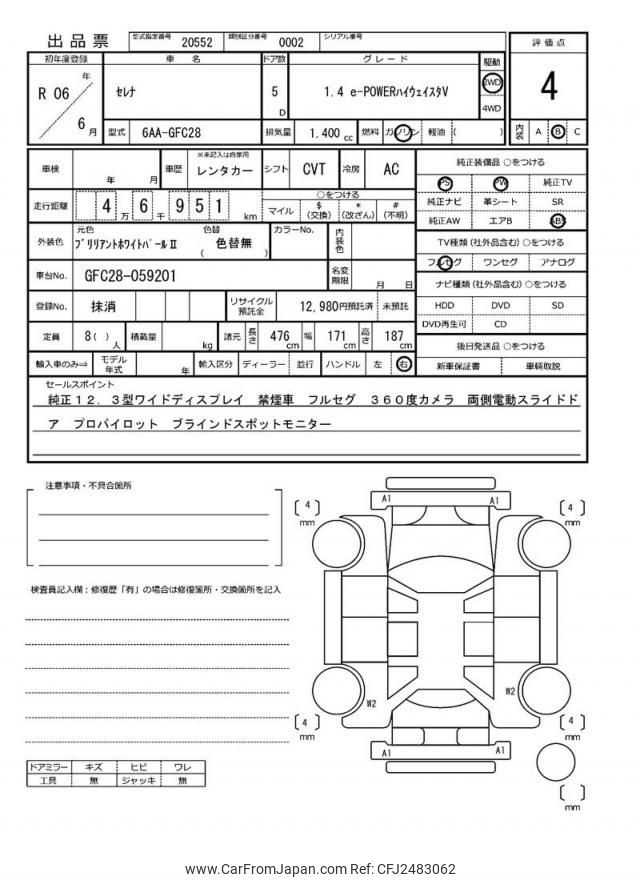 出品票 型式指定番号 20552 類別区分番号 0002 シリアル番号
初年度登録 車 名 ドア数 グレード 駆動 評価点
R 06 年 6 月 セレナ 5 D 1.4 e-POWERハイウェイスタV 2WD 4WD 4
型式 6AA-GFC28 排気量 1,400 cc 燃料 ガソリン 軽油 ( ) 内装 A B C
車検 年 月 車歴 ※未記入は自家用 レンタカー シフト CVT 冷房 AC
走行距離 4 万 6 千 9 5 1 km ○をつける マイル $ (交換) * (改ざん) # (不明)
外装色 元色 ブリリアントホワイトパールⅡ 色替 ( 色替無 ) カラーNo. 内装色
車台No. GFC28-059201 名変期限 月 日
登録No. 抹消 リサイクル預託金 12,980円預託済 未預託
定員 8( ) 人 積載量 kg 諸元 長さ 476 cm 幅 171 cm 高さ 187 cm
輸入車のみ⇨ モデル年式 年 輸入区分 ディーラー 並行 ハンドル 左 右
純正装備品 ○をつける
PS PW 純正TV
純正ナビ 革シート SR
純正AW エアB ABS
TV種類 (社外品含む) ○をつける
フルセグ ワンセグ アナログ
ナビ種類 (社外品含む) ○をつける
HDD DVD SD
DVD再生可 CD
後日発送品 ○をつける
新車保証書 車輌取説
セールスポイント
純正12．3型ワイドディスプレイ 禁煙車 フルセグ 360度カメラ 両側電動スライドド
ア プロパイロット ブラインドスポットモニター
注意事項・不具合箇所
検査員記入欄：修復歴「有」の場合は修復箇所・交換箇所を記入
ドアミラー キズ ヒビ ワレ
工具 無 ジャッキ 無
A1 A1
〔 4 〕 mm 〔 4 〕 mm
W2 W2
〔 4 〕 mm 〔 4 〕 mm
A1 A1
〔 〕 mm
www.CarFromJapan.com Ref: CFJ2483062